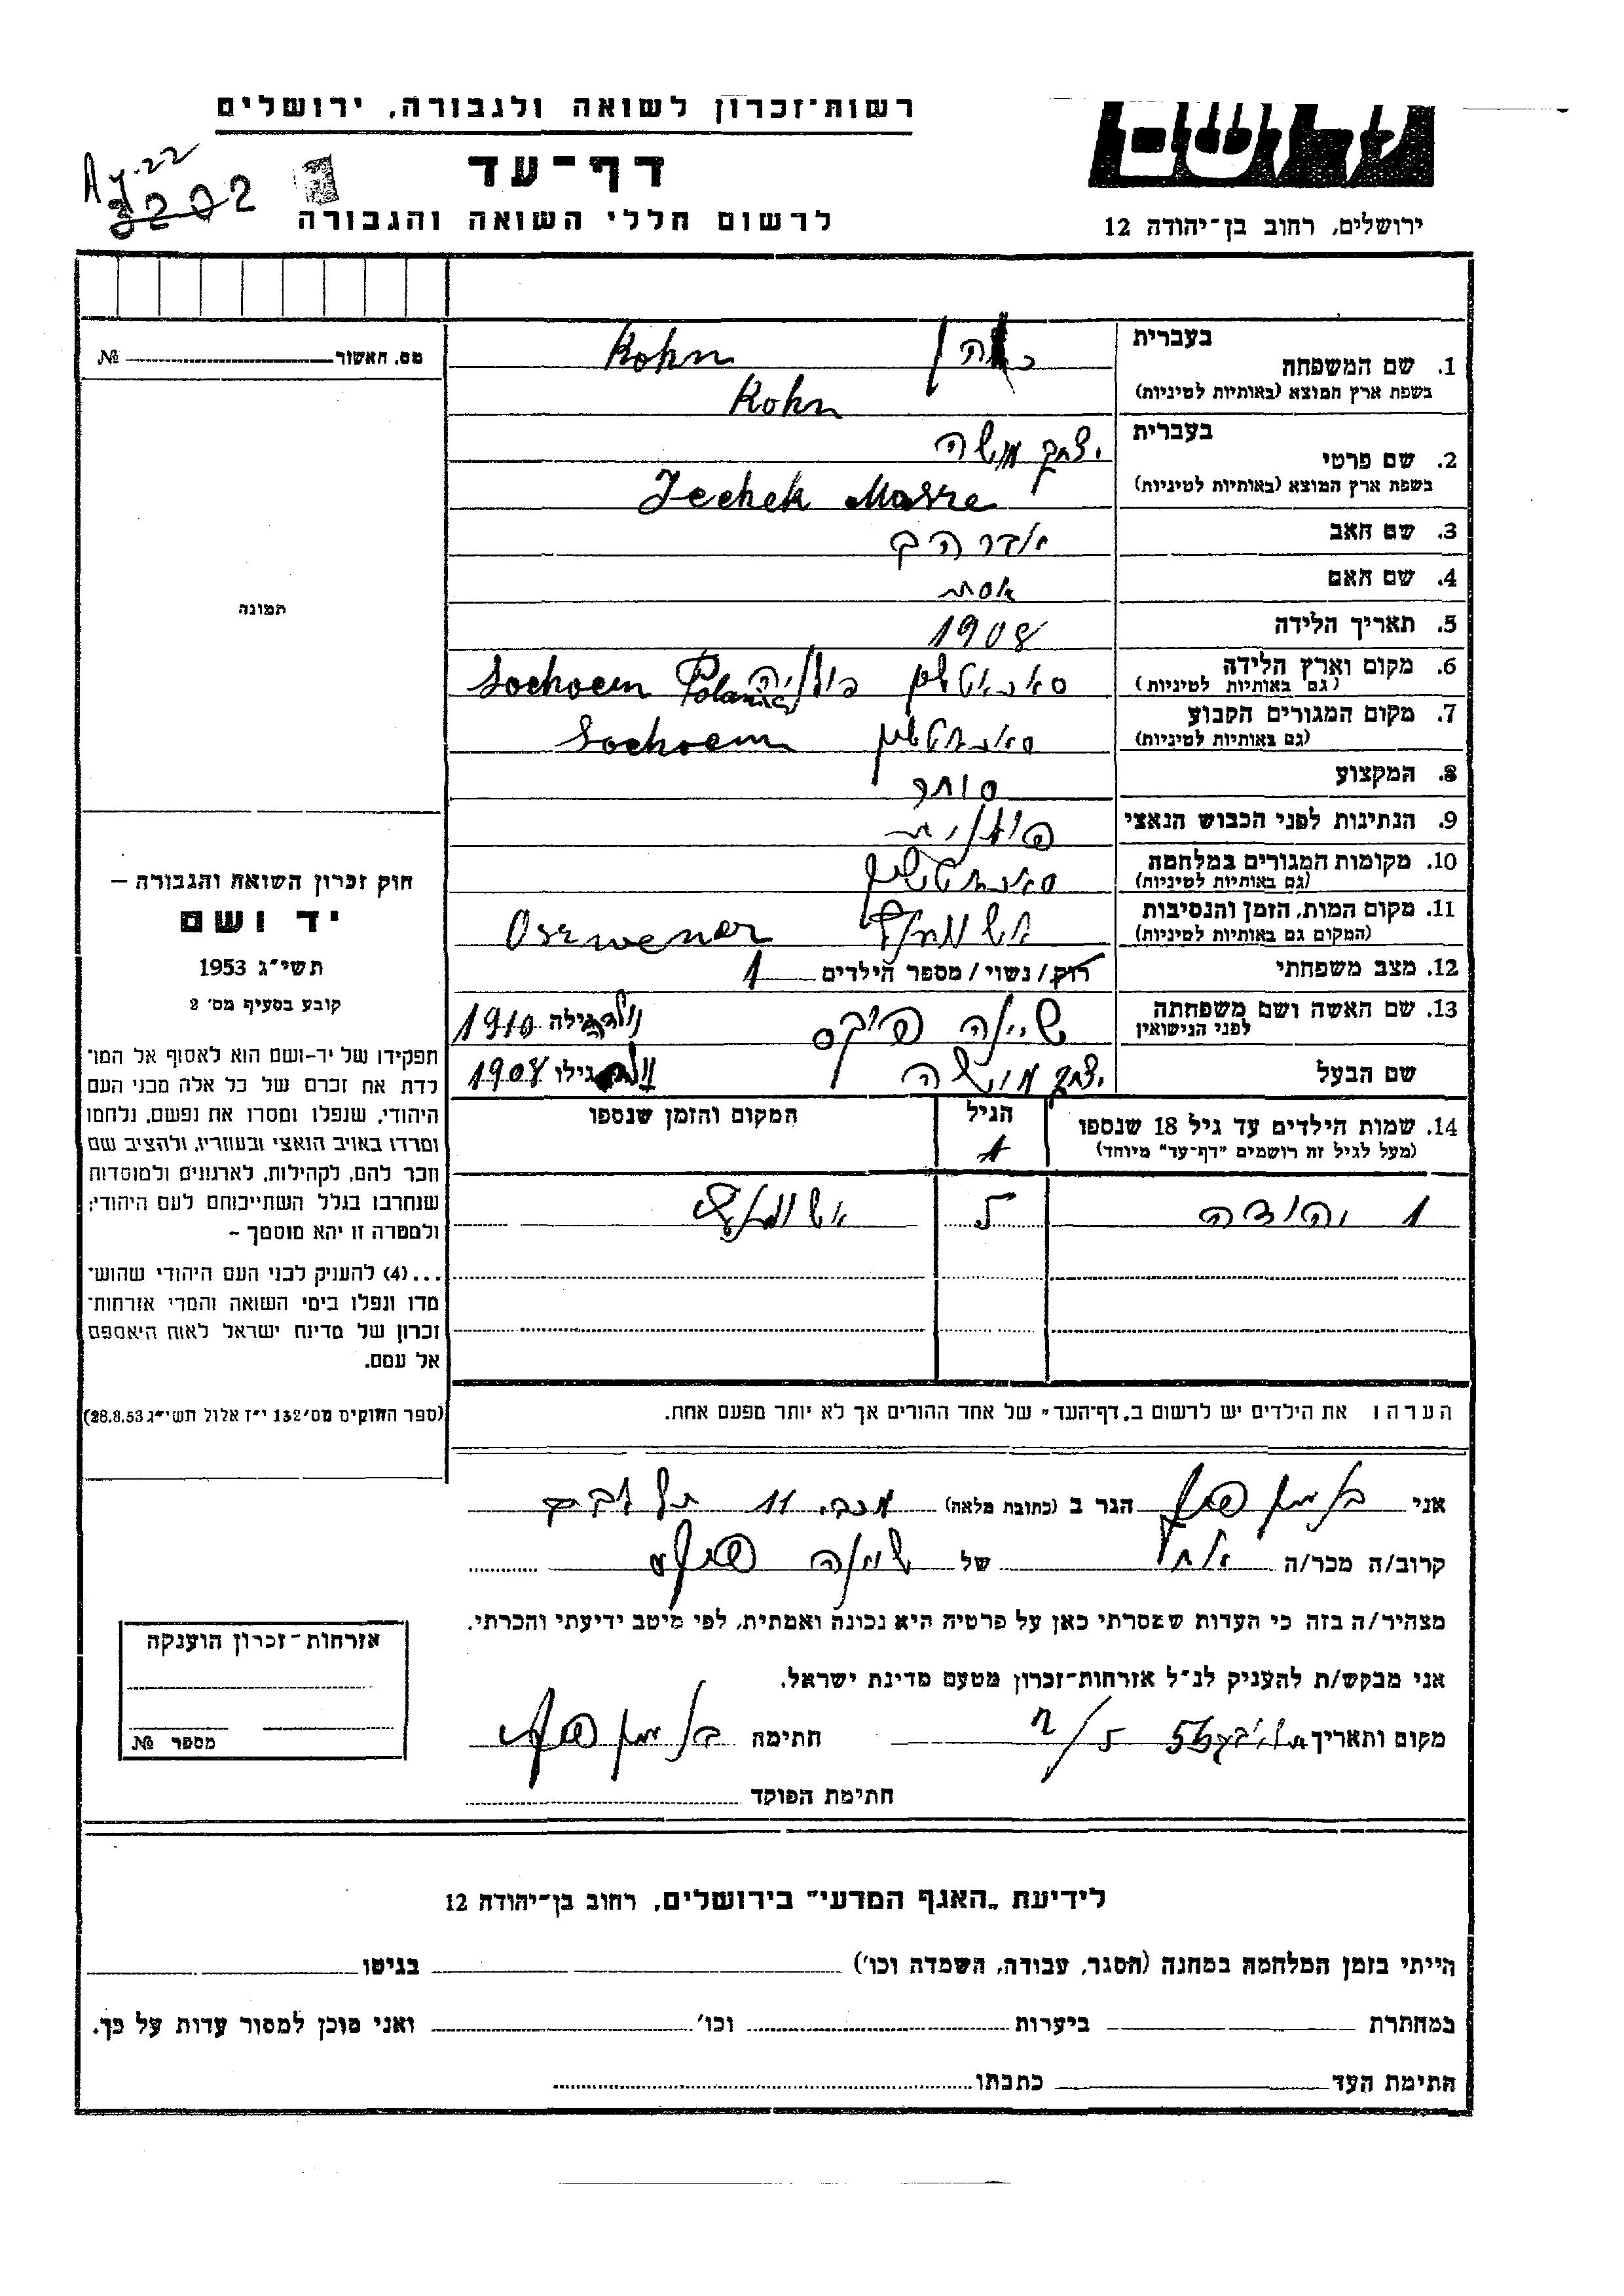 רשות־זכרון לשואה ולגבורה, ירושלים
דף־עד
לרשום חללי השואה והגבורה
ירושלים, רחוב בן־יהודה 12
מס. האשור №
1. שם המשפחה
בעברית
כהן Kohn
בשפת ארץ המוצא (באותיות לטיניות)
Kohn
2. שם פרטי
בעברית
יצחק משה
בשפת ארץ המוצא (באותיות לטיניות)
Jechek Mosze
3. שם האב
אברהם
4. שם האם
אסתר
5. תאריך הלידה
1908
6. מקום וארץ הלידה
(גם באותיות לטיניות)
פולניה Sochocin Polania
7. מקום המגורים הקבוע
(גם באותיות לטיניות)
Sochocin
8. המקצוע
סוחר
9. הנתינות לפני הכבוש הנאצי
פולנית
10. מקומות המגורים במלחמה
(גם באותיות לטיניות)
11. מקום המות, הזמן והנסיבות
(המקום גם באותיות לטיניות)
12. מצב משפחתי
רוק/ נשוי/ מספר הילדים 1
13. שם האשה ושם משפחתה
לפני הנישואין
גילה 1910
שם הבעל
יצחק משה
גילו 1908
14. שמות הילדים עד גיל 18 שנספו
(מעל לגיל זה רושמים "דף־עד" מיוחד)
הגיל
המקום והזמן שנספו
1
1 יהודה 5
הערה: את הילדים יש לרשום ב„דף־העד" של אחד ההורים אך לא יותר מפעם אחת.
תמונה
חוק זכרון השואה והגבורה —
יד ושם
תשי״ג 1953
קובע בסעיף מס׳ 2
תפקידו של יד-ושם הוא לאסוף אל המו־
לדת את זכרם של כל אלה מבני העם
היהודי, שנפלו ומסרו את נפשם, נלחמו
ומרדו באויב הנאצי ובעוזריו, ולהציב שם
וזכר להם, לקהילות, לארגונים ולמוסדות
שנחרבו בגלל השתייכותם לעם היהודי;
ולמטרה זו יהא מוסמך –
...(4) להעניק לבני העם היהודי שהוש־
מדו ונפלו בימי השואה והמרי אזרחות־
זכרון של מדינת ישראל לאות היאספם
אל עמם.
(ספר החוקים מס׳ 132 י״ז אלול תשי״ג 28.8.53)
אני
הגר ב (כתובת מלאה) 11 תל אביב
קרוב/ה מכר/ה
של
מצהיר/ה בזה כי העדות שמסרתי כאן על פרטיה היא נכונה ואמתית, לפי מיטב ידיעתי והכרתי.
אני מבקש/ת להעניק לנ״ל אזרחות־זכרון מטעם מדינת ישראל.
מקום ותאריך
חתימה
חתימת הפוקד
אזרחות־זכרון הוענקה
מספר №
לידיעת „האגף המדעי" בירושלים, רחוב בן־יהודה 12
הייתי בזמן המלחמה במחנה (הסגר, עבודה, השמדה וכו׳)
בגיטו
במחתרת
ביערות
וכו׳
ואני מוכן למסור עדות על כך.
חתימת העד
כתבתו